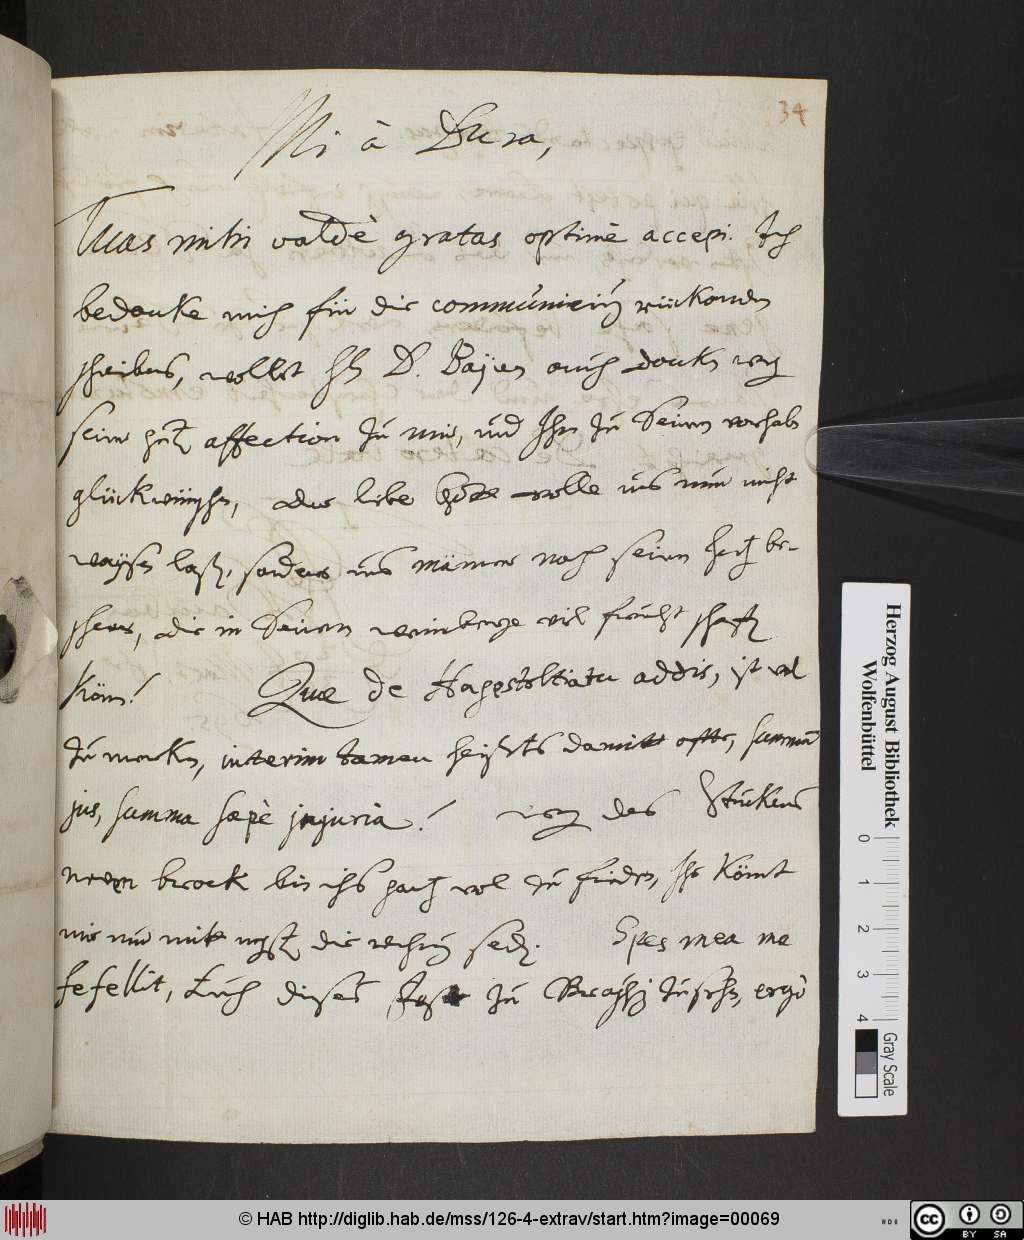 34
Mi à Dura,
Tuas mihi valdè gratas optimè accepi. Ich
bedanke mich für die communicirung
schreibens, wollet H. D. Baÿer auch dancken
seiner affection zu mir, und Ihm zu Seinem vorhaben
glückwünschen, der liebe Gott wolle uns nun nicht
waÿsen laßen, sondern uns männer nach seinem hertzen be-
scheren, die in Seinem weinberge viel frucht schaffen
können! Quae de Hagestoltiatu addis, ist wol
zu mercken, interim tamen heist's damitt offte, summum
jus, summa saepè injuria! wegen des Stückens
brock bin ich gar wol zu frieden, Ihr Kömt
mir nur mitt die Spes mea me
fefellit, Euch dieses zu zusehen, ergò
Herzog August Bibliothek
Wolfenbüttel
0 1 2 3 4
Gray Scale
© HAB http://diglib.hab.de/mss/126-4-extrav/start.htm?image=00069
cc BY SA